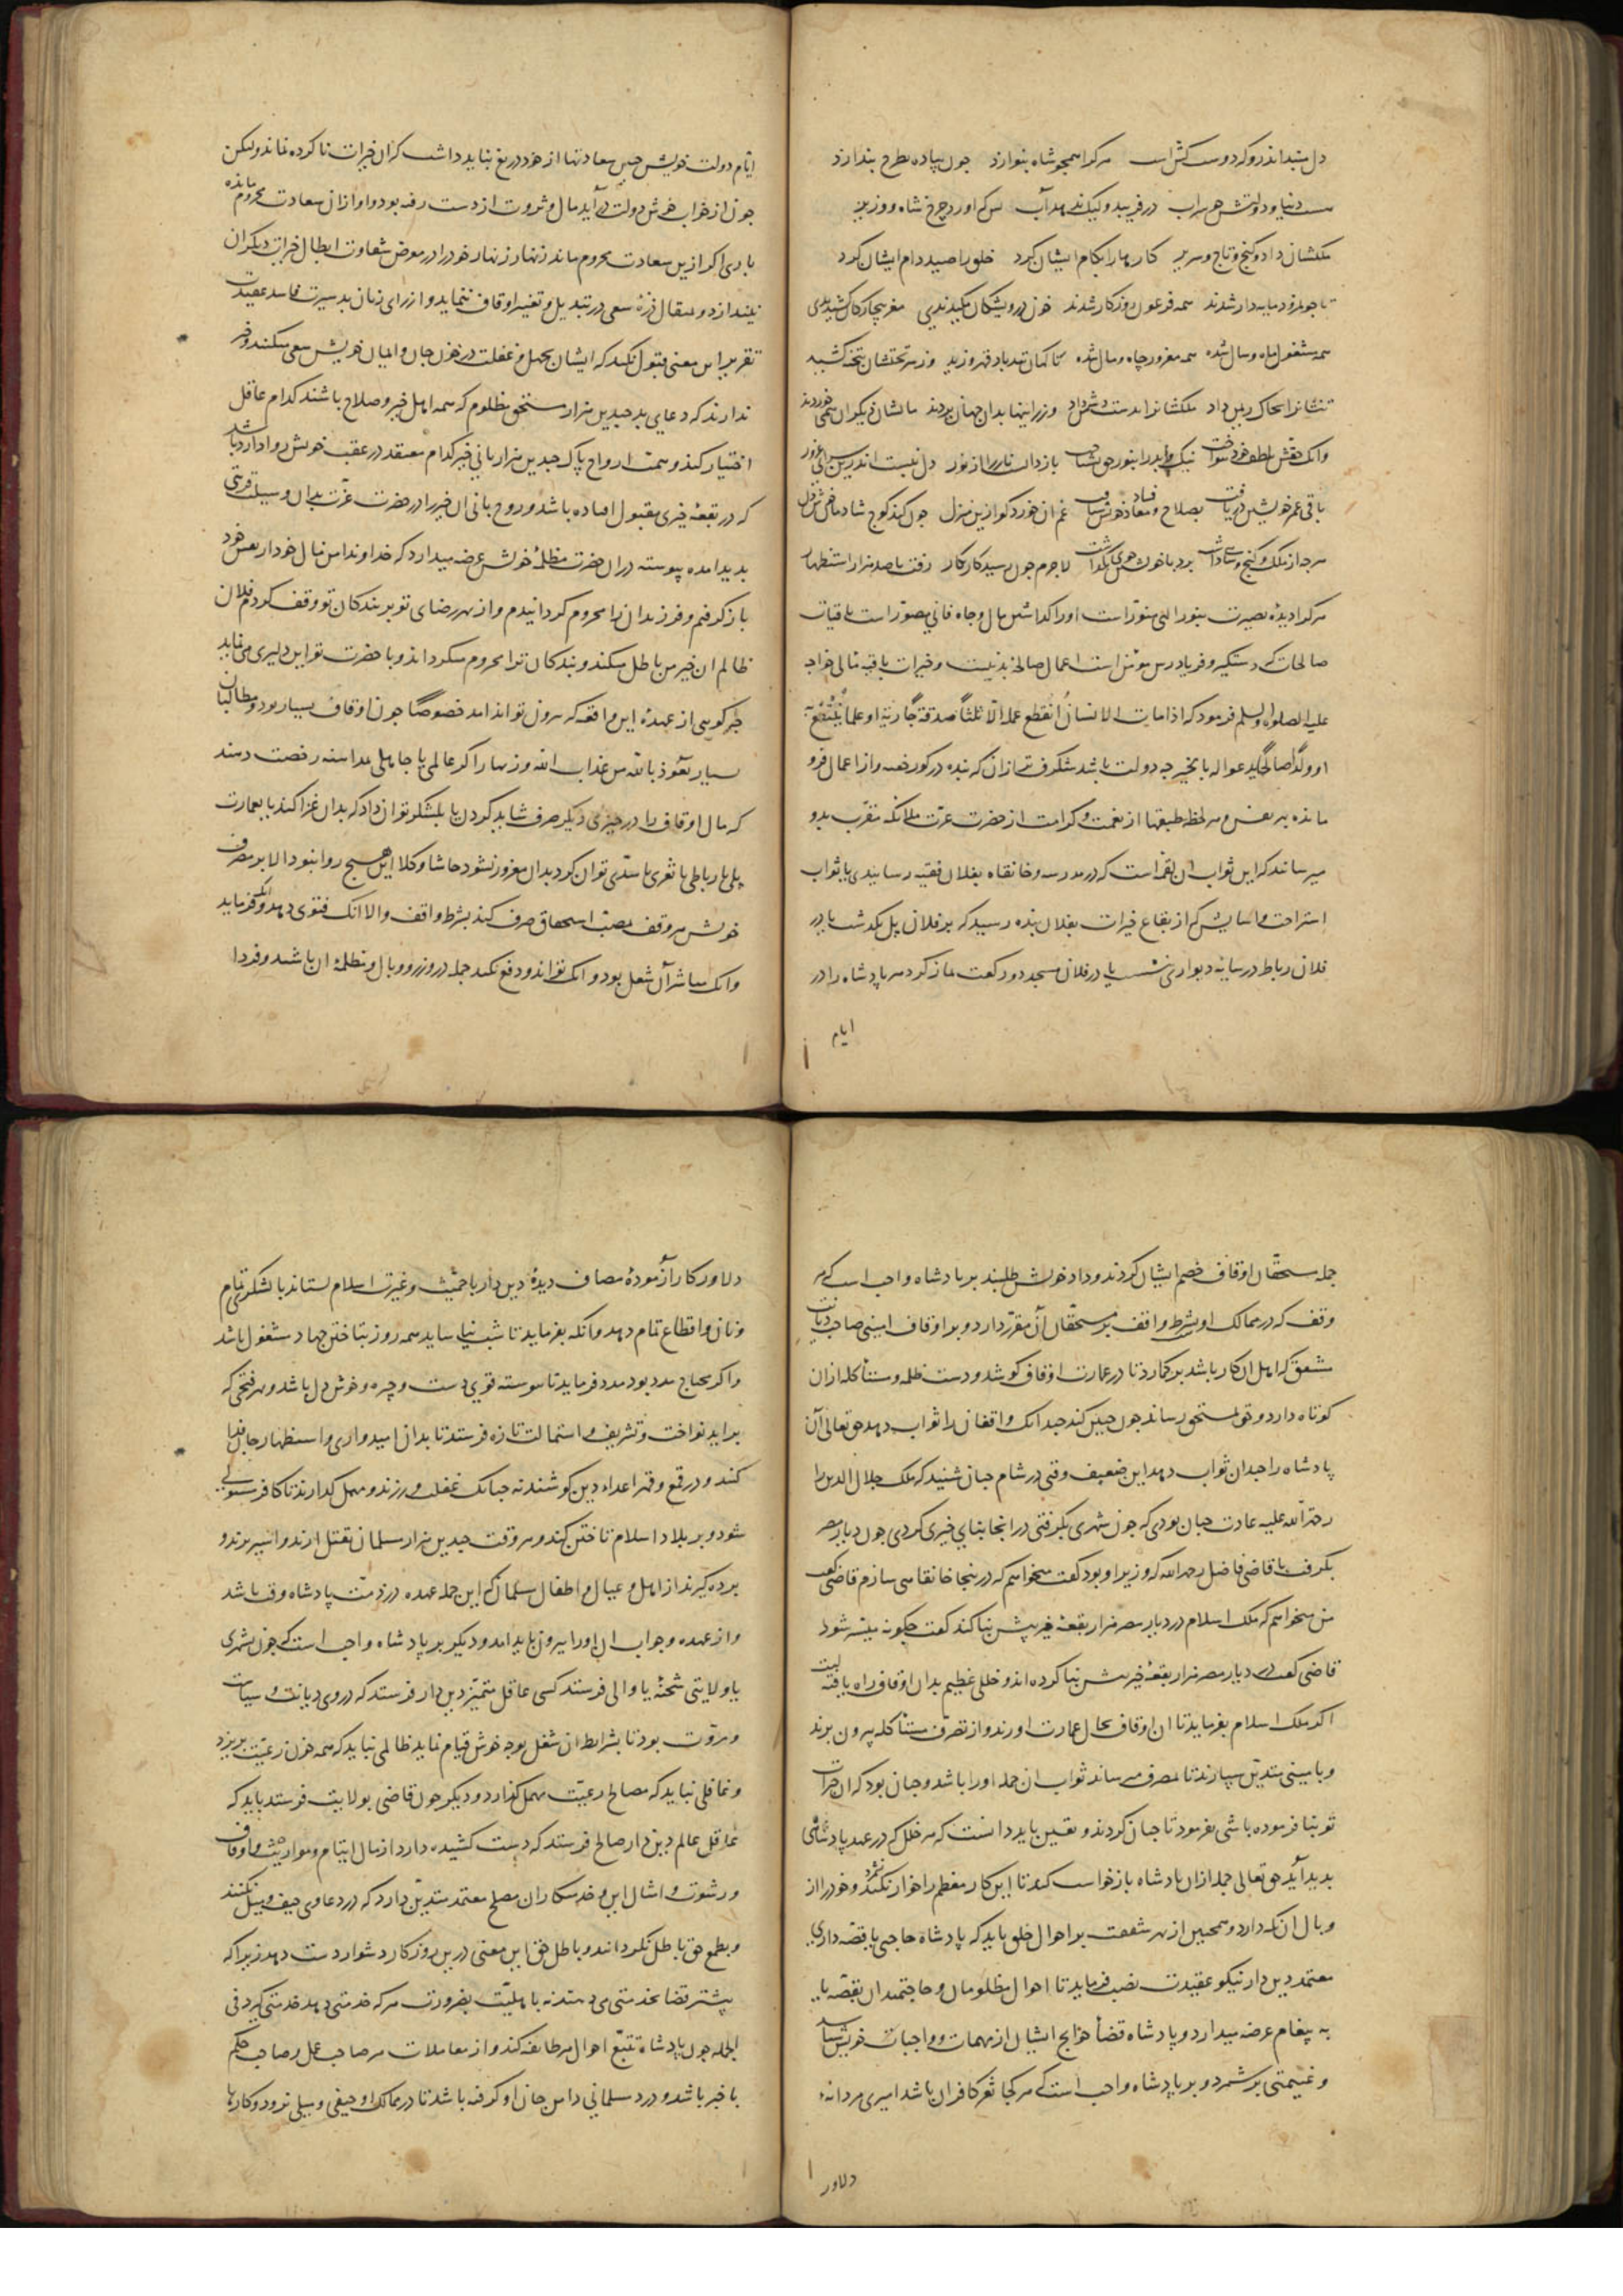 دل مبند اندرو که دوست کش است هر کرا همچو شاه بنوازد چون پیاده بطرح بندازد
هست دنیا و دولتش چو سراب در فریبد ولیک ندهد آب بس که آورد چرخ شاه و وزیر
ملکشان داد و گنج و تاج و سریر کار ایشان بکام ایشان کرد خلق را صید دام ایشان کرد
تا چو نمرود مایه دار شدند همه فرعون روزگار شدند خون درویشکان مکیدندی مغز بیچارگان کشیدندی
همه مشغول ماه و سال شده همه مغرور جاه و مال شده ناگهان تند باد قهر وزید وز سر تختشان بتخته کشید
تنشانرا بخاک ریمن داد ملکشانرا بدست دشمن داد وزر اینها بدان جهان بردند مالشان دیگران همی خوردند
وانک حقش بلطف خود بنواخت نیک و بد را بنور حق بشناخت باز دانست نار را از نور دل نبست اندرین سرای غرور
باقی عمر خویش دریافت بصلاح معاد خویش شتافت غم آن خورد کو ازین منزل چون کند کوچ شادمان خوش دل
هرچ از ملک و گنج و شاهی داشت برد با خویشتن همی نگذاشت لاجرم چون رسید کار بکار رفت با صد هزار استظهار
هر کرا دیدهٔ بصیرت بنور الهی منورست او را گذاشتن مال و جاه فانی مصورست باقیات
صالحات که دستگیر و فریادرس مونس است اعمال صالحهٔ بدنیست و خیرات باقیه مالی خواجه
علیه الصلوة والسلم فرمود که اذا مات الانسان انقطع عمله الا ثلثا صدقة جاریة او علما ینتفع به
او ولدا صالحا یدعو له بالخیر چه دولت باشد شگرفتر از آن که بنده در گور خفته و از اعمال فرو
مانده بهر نفس و هر لحظه طبقها از نعمت و کرامت از حضرت عزت ملائکه مقرب بدو
میرسانند که این ثواب آن لقمه است که در مدرسه و خانقاه بفلان فقیه رسانیدی یا ثواب
استراحت و آسایش که از بقاع خیرات بفلان بنده رسید که بر فلان پل بگذشت یا در
فلان رباط در سایهٔ دیواری نشست یا در فلان مسجد دو رکعت نماز کرد هر پادشاه را در
ایام
ایام دولت خویش چنین سعادتها از خود دریغ نباید داشت که از آن خیرات ناکرده نماند ولیکن
چون از خواب خوش دولت درآید مال و ثروت از دست رفته بود و او از آن سعادت محروم مانده
باری اگر ازین سعادت محروم ماند زنهار زنهار خود را در معرض شقاوت ابطال خیرات دیگران
نیندازد و مثقال ذرهٔ سعی در تبدیل و تغییر اوقاف ننماید و از رای زنان بد سیرت فاسد عقیدت
تقریر این معنی قبول نکند که ایشان بجهل و غفلت در خون جان و ایمان خویش سعی میکنند و خبر
ندارند که دعای بد چندین هزار مستحق مظلوم که همه اهل خیر و صلاح باشند کدام عاقل
اختیار کند و همت ارواح پاک چندین هزار بانی خیر کدام معتقد در عقب خویش روا دارد باشد
که در بقعهٔ خیری مقبول افتاده باشد و روح بانی آن خیر را در حضرت عزت بدان وسیلت قربتی
پدید آمده پیوسته در آن حضرت مظلمهٔ خویش عرضه میدارد که خداوندا من مال خود از نفس خود
باز گرفتم و فرزندان را محروم گردانیدم و از بهر رضای تو بر بندگان تو وقف کردم فلان
ظالم آن خیر من باطل میکند و بندگان ترا محروم میگرداند و با حضرت تو این دلیری می نماید
چگونه کسی از عهدهٔ این واقعه که بیرون تواند آمد خصوصا چون اوقاف بسیار بود و مطالبان
بسیار نعوذ بالله من عذاب الله و زنهار اگر عالمی یا جاهلی مداهنه رخصت دهند
که مال اوقاف را در چیزی دیگر صرف شاید کردن یا بلشکر توان داد که بدان غزا کنند یا بعمارت
پلی یا رباطی یا ثغری یا سدی توان کرد بدان مغرور نشود حاشا و کلا این هیچ روا نبود الا بر مصرف
خویش هر وقف بمصب استحقاق صرف کند بشرط واقف و الا انک فتوی دهد و آنکه فرماید
وانک مباشر آن شغل بود و انک تواند و دفع نکند جمله در وزر و وبال و مظلمهٔ آن باشند و فردا
جمله مستحقان اوقاف خصم ایشان گردند و داد خویش طلبند بر پادشاه واجب است که هر
وقف که در ممالک او بشرط واقف بر مستحقان آن مقرر دارد و بر اوقاف امینی صاحب دیانت
مشفق که اهل آن کار باشد بر گمارد تا در عمارت اوقاف کوشد و دست ظلمه و مستأکله از آن
کوتاه دارد و حق بمستحق رساند چون چنین کند چندانک واقفان را ثواب دهد حق تعالی آن
پادشاه را چندان ثواب دهد این ضعیف وقتی در شام چنان شنید که ملک صلاح الدین را
رحمة الله علیه عادت چنان بودی که چون شهری بگرفتی در آنجا بنای خیری کردی چون دیار مصر
بگرفت با قاضی فاضل رحمه الله که وزیر او بود گفت میخواهم که در اینجا خانقاهی سازم قاضی گفت
من میخواهم که ملک اسلام در دیار مصر هزار بقعهٔ خیر بیش بنا کند گفت چگونه میسر شود
قاضی گفت در دیار مصر هزار بقعهٔ خیر بیش بنا کرده اند و خللی عظیم بدان اوقاف راه یافته است
اگر ملک اسلام بفرماید تا آن اوقاف بحال عمارت آورند و از تصرف مستأکله بیرون برند
و بامینی متدین سپارند تا بمصرف میرساند ثواب آن جمله او را باشد و چنان بود که آن خیرات
تو بنا فرموده باشی بفرمود تا چنان کردند و یقین باید دانست که هر خلل که در عهد پادشاهی
پدید آید حق تعالی جمله از آن پادشاه باز خواست کند تا این کار معظم را خوار نشمرد و خود را از
وبال آن نگه دارد و همچنین از بهر شفقت بر احوال خلق باید که پادشاه حاجبی یا قصه داری
معتمد دین دار نیکو عقیدت نصب فرماید تا احوال مظلومان و حاجتمندان بقصه یا
به پیغام عرضه میدارد و پادشاه قضاء حوایج ایشان از مهمات و واجبات خویش شناسد
و غنیمتی بر شمرد و بر پادشاه واجب است که هر کجا ثغر کافران باشد امیری مردانه
دلاور
دلاور کار آزمودهٔ مصاف دیدهٔ دین دار با حمیت و غیرت اسلام بستاند با لشکری تمام
و نان و اقطاع تمام دهد و آنکه بفرماید تا شب نیاساید همه روز بتاختن جهاد مشغول باشد
و اگر محتاج مدد بود مدد فرماید تا پیوسته قوی دست و چیره و خوش دل باشد و بهر فتحی که
برآید نواخت و تشریف و استمالت تازه فرستد تا بدان امیدواری و استظهار جان فدا
کند و در قمع و قهر اعداء دین کوشند نه چنانک غفلت ورزند و مهمل گذارند تا کافر مستولی
شود و بر بلاد اسلام تاختن کند و هر وقت چندین هزار مسلمان بقتل آرند و اسیر برند و
برده گیرند از اهل و عیال و اطفال مسلمان که این جمله عهده در ذمت پادشاه وقت باشد
و از عهده و جواب آن او را بیرون باید آمد و دیگر بر پادشاه واجب است که چون بشهری
یا ولایتی شحنه یا والی فرستد کسی عاقل متمیز دین دار فرستد که در وی دیانت و سیاست
و مروت بود تا بشرایط آن شغل بوجه خویش قیام نماید ظالمی نباید که همه خون رعیت بریزد
و غافلی نباید که مصالح رعیت مهمل گذارد و دیگر چون قاضی بولایت فرستد باید که
عاقل عالم دین دار صالح فرستد که دست کشیده دارد از مال ایتام و مواریث و اوقاف
و رشوت و امثال این و خدمتکاران مصلح معتمد متدین دارد که در دعاوی حیف و میل نکنند
و بطمع حق باطل نگردانند و باطل حق این معنی درین روزگار دشوار دست دهد زیرا که
بیشتر قضا بخدمتی می دهند نه باهلیت بضرورت هر که خدمتی دهد خدمتی گیرد فی
الجمله چون پادشاه تتبع احوال هر طایفه کند و از معاملات هر صاحب عمل و صاحب حکم
باخبر باشد و درد مسلمانی دامن جان او گرفته باشد تا در ممالک او حیفی و میلی نرود و کارها